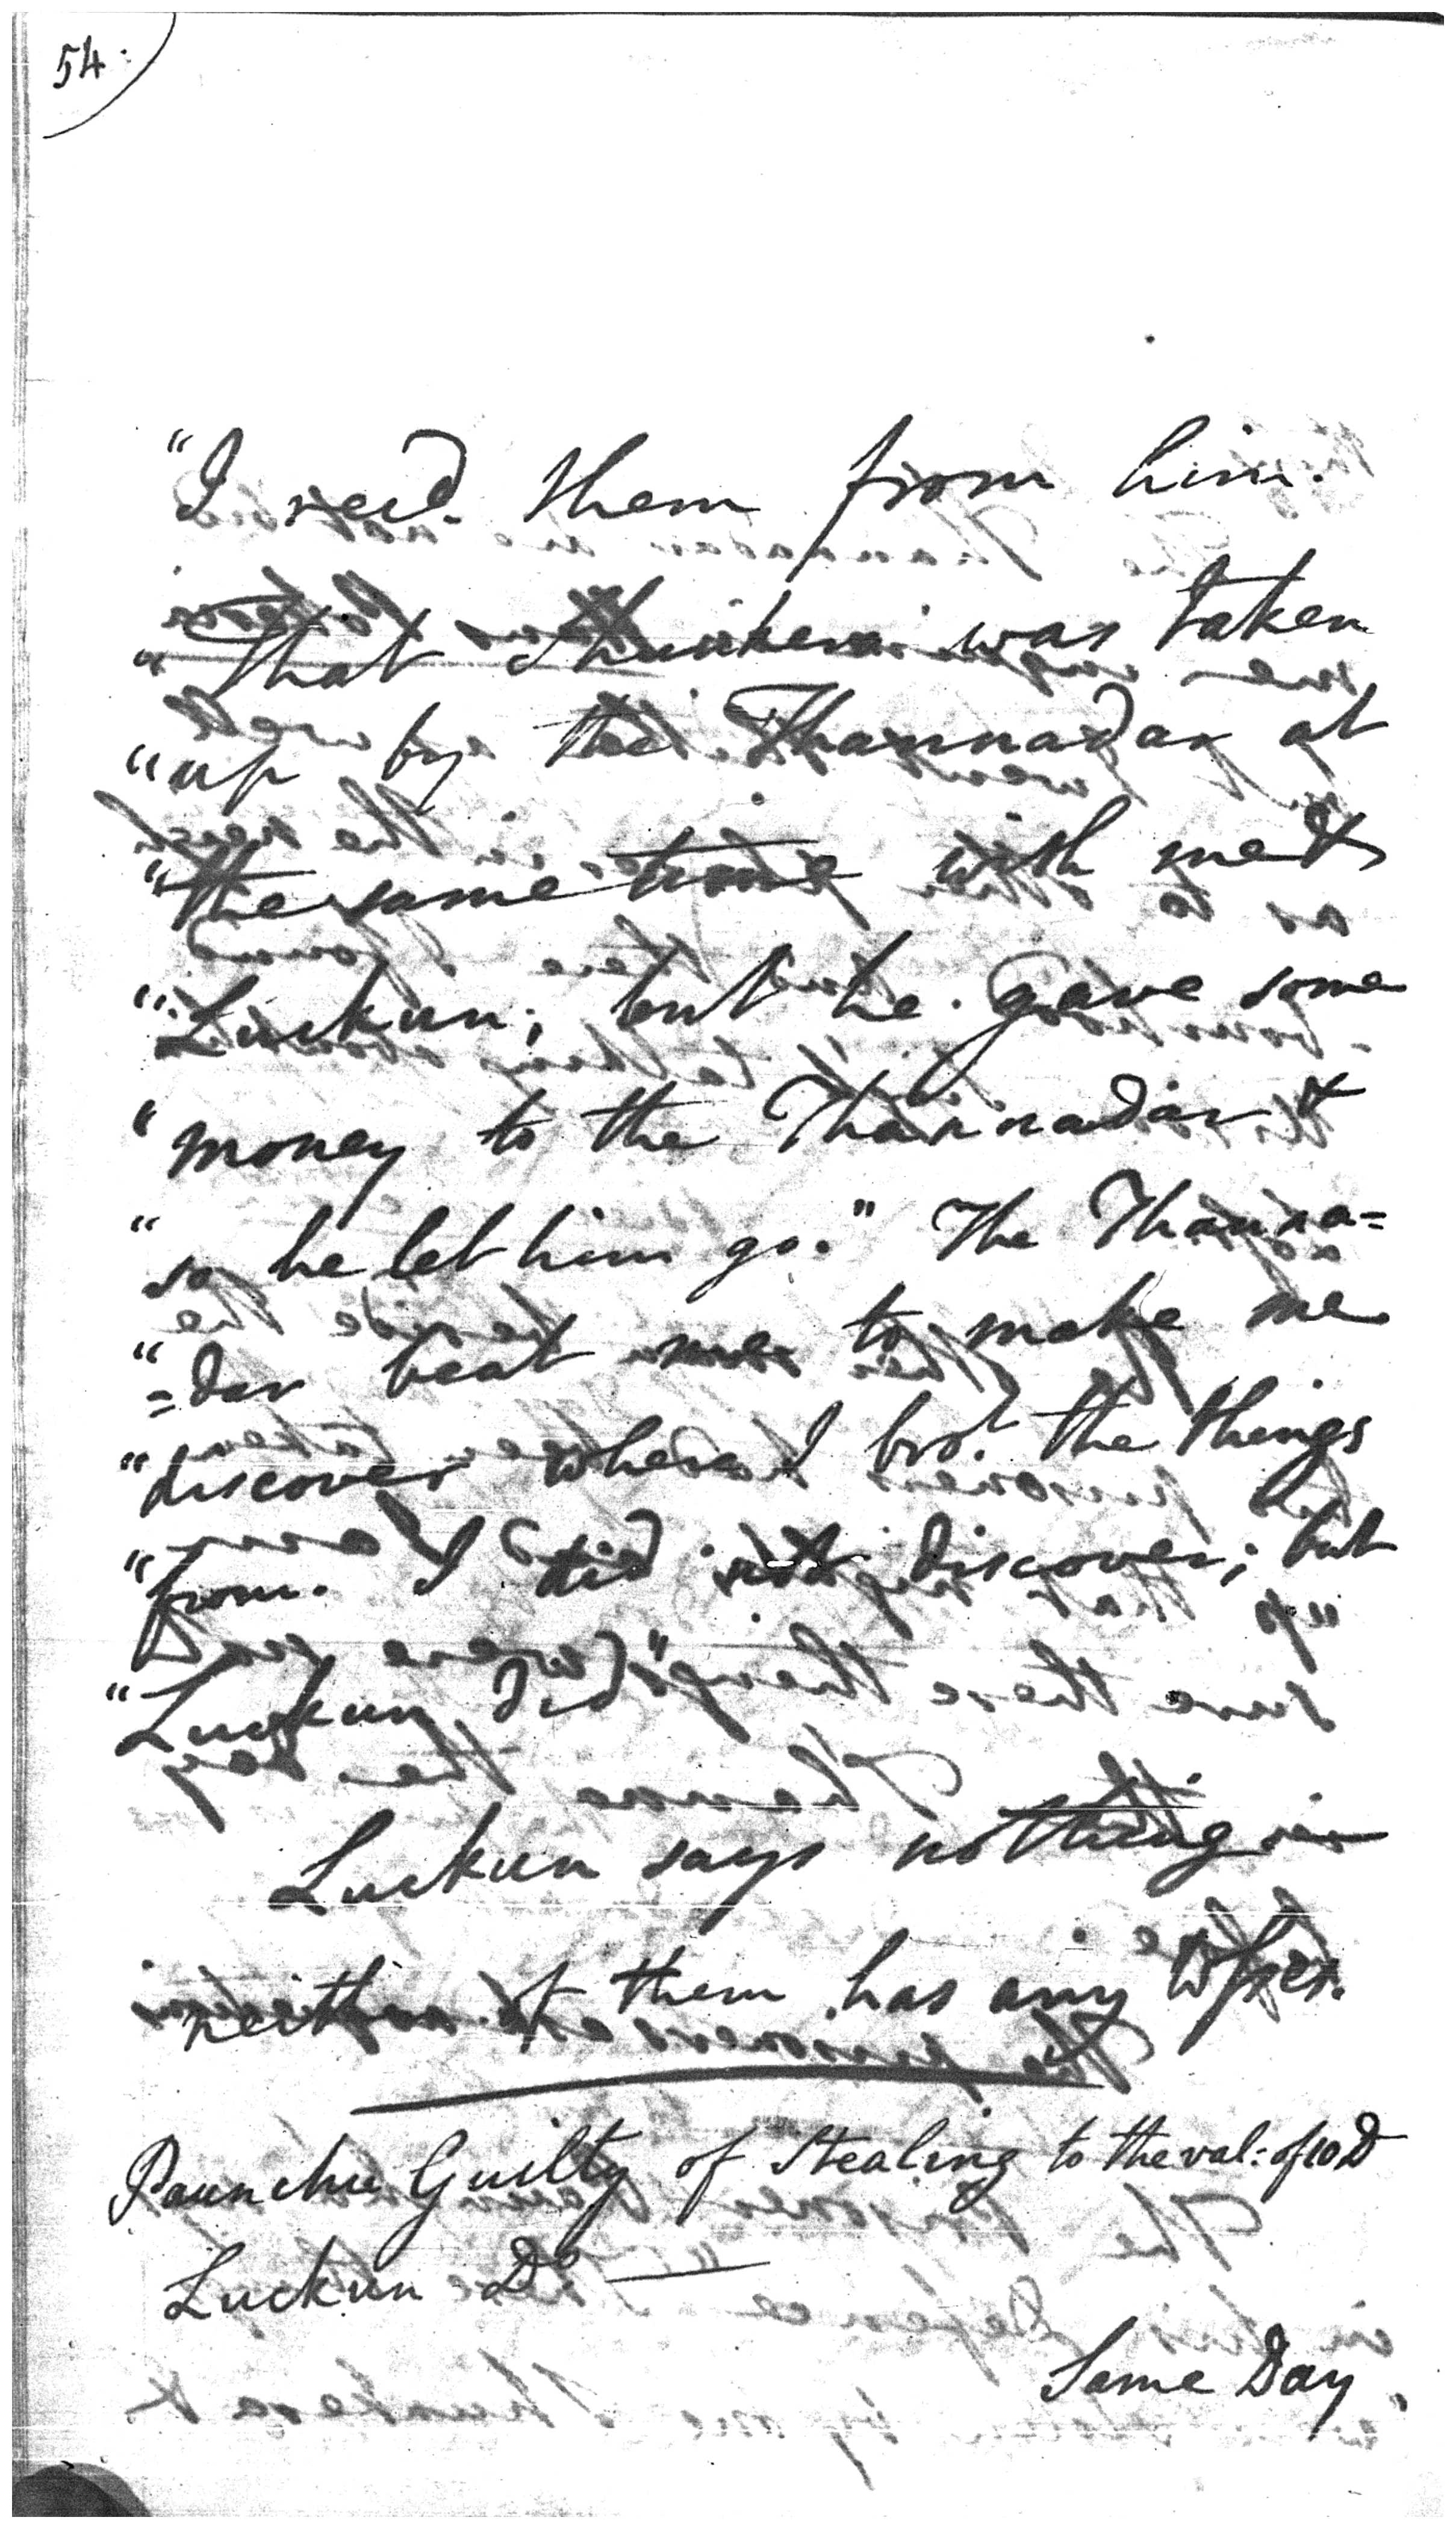 54:
"I recd. them from him.
"That Shunkera was taken
"up by the Thannadar at
"the same time with me &
"Luckun; but he gave some
"money to the Thannadar &
"so he let him go." The Thanna=
"=dar beat me to make me
"discover where I brot. the things
"from. I did not discover; but
"Luckun did"
Luckun says nothing
neither of them has any Wsses.
Paunchu Guilty of Stealing to the val: of 10 D
Luckun Do. —
Same Day,